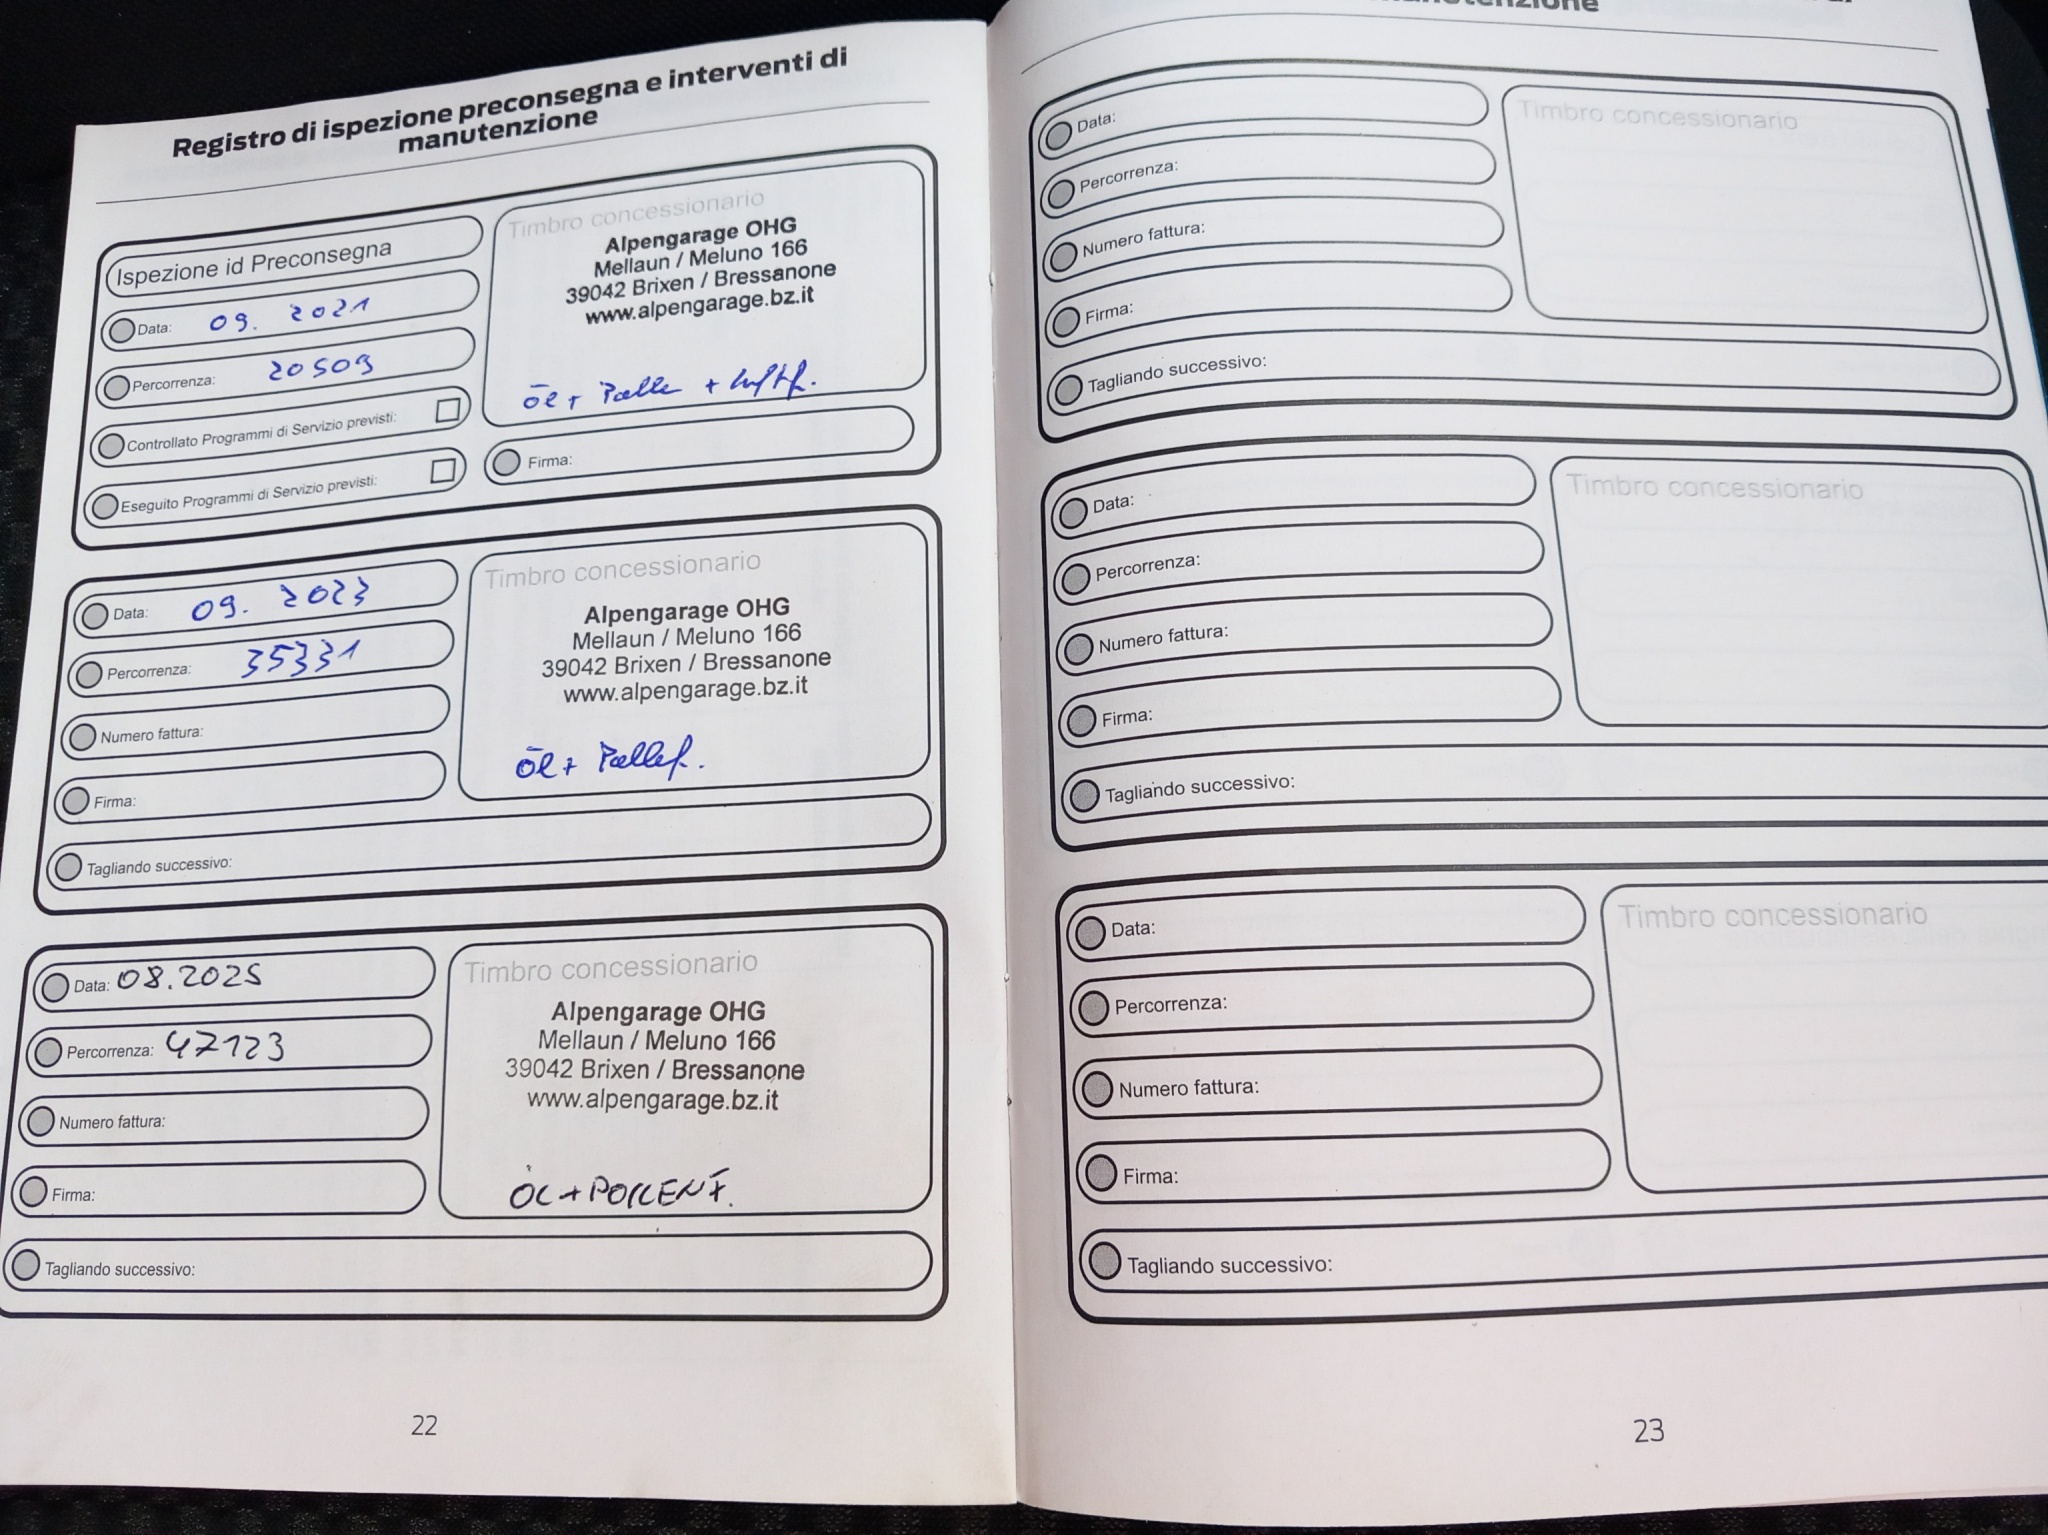 Registro di ispezione preconsegna e interventi di
manutenzione
Ispezione id Preconsegna
Data: 09. 2021
Percorrenza: 20509
Controllato Programmi di Servizio previsti:
Eseguito Programmi di Servizio previsti:
Timbro concessionario
Alpengarage OHG
Mellaun / Meluno 166
39042 Brixen / Bressanone
www.alpengarage.bz.it
Öl + Pollen + Luftf.
Firma:
Data: 09. 2023
Percorrenza: 35331
Numero fattura:
Firma:
Timbro concessionario
Alpengarage OHG
Mellaun / Meluno 166
39042 Brixen / Bressanone
www.alpengarage.bz.it
Öl + Pollenf.
Tagliando successivo:
Data: 08.2025
Percorrenza: 47123
Numero fattura:
Firma:
Timbro concessionario
Alpengarage OHG
Mellaun / Meluno 166
39042 Brixen / Bressanone
www.alpengarage.bz.it
ÖL + POLLENF.
Tagliando successivo:
22
manutenzione
Data:
Percorrenza:
Numero fattura:
Firma:
Timbro concessionario
Tagliando successivo:
Data:
Percorrenza:
Numero fattura:
Firma:
Timbro concessionario
Tagliando successivo:
Data:
Percorrenza:
Numero fattura:
Firma:
Timbro concessionario
Tagliando successivo:
23